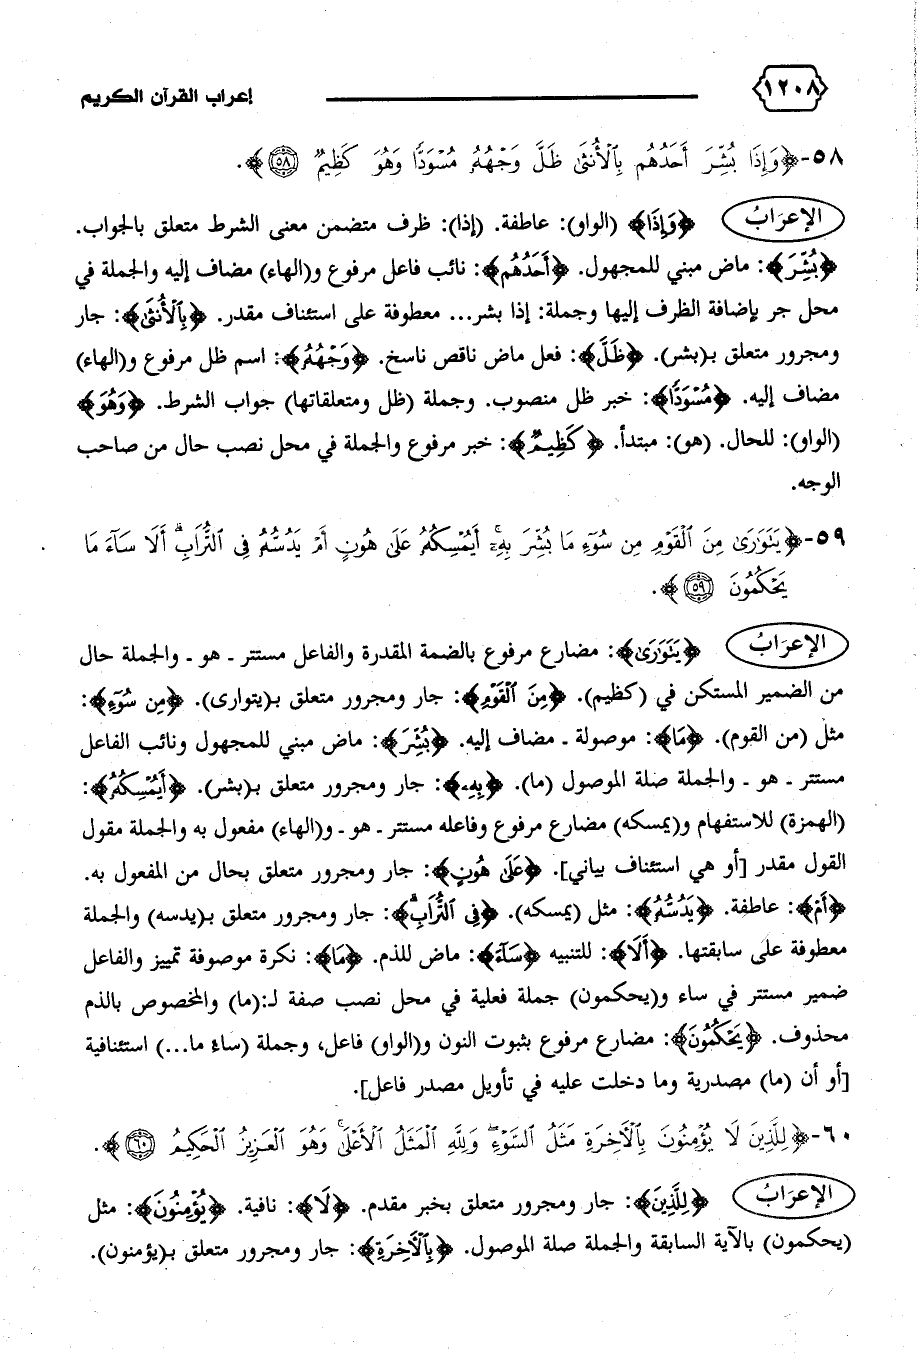 ١٢٠٨ إعراب القرآن الكريم
٥٨-﴿وَإِذَا بُشِّرَ أَحَدُهُم بِٱلْأُنثَىٰ ظَلَّ وَجْهُهُۥ مُسْوَدًّا وَهُوَ كَظِيمٌ ٥٨﴾.
الإعرَابُ ﴿وَإِذَا﴾ (الواو): عاطفة. (إذا): ظرف متضمن معنى الشرط متعلق بالجواب.
﴿بُشِّرَ﴾: ماض مبني للمجهول. ﴿أَحَدُهُم﴾: نائب فاعل مرفوع و(الهاء) مضاف إليه والجملة في
محل جر بإضافة الظرف إليها وجملة: إذا بشر... معطوفة على استئناف مقدر. ﴿بِٱلْأُنثَىٰ﴾: جار
ومجرور متعلق بـ(بشر). ﴿ظَلَّ﴾: فعل ماض ناقص ناسخ. ﴿وَجْهُهُۥ﴾: اسم ظل مرفوع و(الهاء)
مضاف إليه. ﴿مُسْوَدًّا﴾: خبر ظل منصوب. وجملة (ظل ومتعلقاتها) جواب الشرط. ﴿وَهُوَ﴾
(الواو): للحال. (هو): مبتدأ. ﴿كَظِيمٌ﴾: خبر مرفوع والجملة في محل نصب حال من صاحب
الوجه.
٥٩-﴿يَتَوَٰرَىٰ مِنَ ٱلْقَوْمِ مِن سُوٓءِ مَا بُشِّرَ بِهِۦٓ ۚ أَيُمْسِكُهُۥ عَلَىٰ هُونٍ أَمْ يَدُسُّهُۥ فِى ٱلتُّرَابِ ۗ أَلَا سَآءَ مَا
يَحْكُمُونَ ٥٩﴾.
الإعرَابُ ﴿يَتَوَٰرَىٰ﴾: مضارع مرفوع بالضمة المقدرة والفاعل مستتر ـ هو ـ والجملة حال
من الضمير المستكن في (كظيم). ﴿مِنَ ٱلْقَوْمِ﴾: جار ومجرور متعلق بـ(يتوارى). ﴿مِن سُوٓءِ﴾:
مثل (من القوم). ﴿مَا﴾: موصولة ـ مضاف إليه. ﴿بُشِّرَ﴾: ماض مبني للمجهول ونائب الفاعل
مستتر ـ هو ـ والجملة صلة الموصول (ما). ﴿بِهِۦ﴾: جار ومجرور متعلق بـ(بشر). ﴿أَيُمْسِكُهُۥ﴾:
(الهمزة) للاستفهام و(يمسكه) مضارع مرفوع وفاعله مستتر ـ هو ـ و(الهاء) مفعول به والجملة مقول
القول مقدر [أو هي استئناف بياني]. ﴿عَلَىٰ هُونٍ﴾: جار ومجرور متعلق بحال من المفعول به.
﴿أَمْ﴾: عاطفة. ﴿يَدُسُّهُۥ﴾: مثل (يمسكه). ﴿فِى ٱلتُّرَابِ ۗ﴾: جار ومجرور متعلق بـ(يدسه) والجملة
معطوفة على سابقتها. ﴿أَلَا﴾: للتنبيه ﴿سَآءَ﴾: ماض للذم. ﴿مَا﴾: نكرة موصوفة تمييز والفاعل
ضمير مستتر في ساء و(يحكمون) جملة فعلية في محل نصب صفة لـ:(ما) والمخصوص بالذم
محذوف. ﴿يَحْكُمُونَ﴾: مضارع مرفوع بثبوت النون و(الواو) فاعل، وجملة (ساءَ ما...) استئنافية
[أو أن (ما) مصدرية وما دخلت عليه في تأويل مصدر فاعل].
٦٠-﴿لِلَّذِينَ لَا يُؤْمِنُونَ بِٱلْـَٔاخِرَةِ مَثَلُ ٱلسَّوْءِ ۖ وَلِلَّهِ ٱلْمَثَلُ ٱلْأَعْلَىٰ ۚ وَهُوَ ٱلْعَزِيزُ ٱلْحَكِيمُ ٦٠﴾.
الإعرَابُ ﴿لِلَّذِينَ﴾: جار ومجرور متعلق بخبر مقدم. ﴿لَا﴾: نافية. ﴿يُؤْمِنُونَ﴾: مثل
(يحكمون) بالآية السابقة والجملة صلة الموصول. ﴿بِٱلْـَٔاخِرَةِ﴾: جار ومجرور متعلق بـ(يؤمنون).